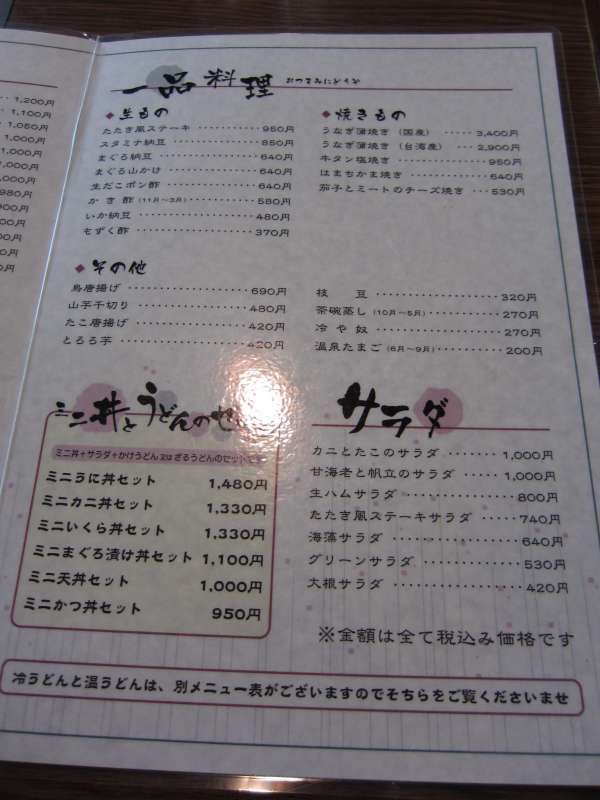 1,200円
1,100円
1,050円
1,000円
1,000円
一品料理 おつまみにどうぞ
◆生もの
たたき風ステーキ ・・・・・・・・・・ 950円
スタミナ納豆 ・・・・・・・・・・・・ 850円
まぐろ納豆 ・・・・・・・・・・・・ 640円
まぐろ山かけ ・・・・・・・・・・・・ 640円
生だこポン酢 ・・・・・・・・・・・・ 640円
かき酢（11月〜3月）・・・・・・・・・・ 580円
いか納豆 ・・・・・・・・・・・・ 480円
もずく酢 ・・・・・・・・・・・・ 370円
◆焼きもの
うなぎ蒲焼き（国産） ・・・・・ 3,400円
うなぎ蒲焼き（台湾産） ・・・ 2,900円
牛タン塩焼き ・・・・・・・・・・ 950円
はまちかま焼き ・・・・・・・・ 640円
茄子とミートのチーズ焼き ・・・ 530円
◆その他
鳥唐揚げ ・・・・・・・・・・・・ 690円
山芋千切り ・・・・・・・・・・・・ 480円
たこ唐揚げ ・・・・・・・・・・・・ 420円
とろろ芋 ・・・・・・・・・・・・ 420円
枝豆 ・・・・・・・・・・・・ 320円
茶碗蒸し（10月〜5月）・・・・・・・・ 270円
冷や奴 ・・・・・・・・・・・・ 270円
温泉たまご（6月〜9月）・・・・・・・・ 200円
ミニ丼とうどんのせ
ミニ丼+サラダ+かけうどん又はざるうどんのセットです
ミニうに丼セット 1,480円
ミニカニ丼セット 1,330円
ミニいくら丼セット 1,330円
ミニまぐろ漬け丼セット 1,100円
ミニ天丼セット 1,000円
ミニかつ丼セット 950円
サラダ
カニとたこのサラダ ・・・・・・・ 1,000円
甘海老と帆立のサラダ ・・・・・ 1,000円
生ハムサラダ ・・・・・・・・・・ 800円
たたき風ステーキサラダ ・・・・・ 740円
海藻サラダ ・・・・・・・・・・・・ 640円
グリーンサラダ ・・・・・・・・・・ 530円
大根サラダ ・・・・・・・・・・・・ 420円
※金額は全て税込み価格です
冷うどんと温うどんは、別メニュー表がございますのでそちらをご覧くださいませ